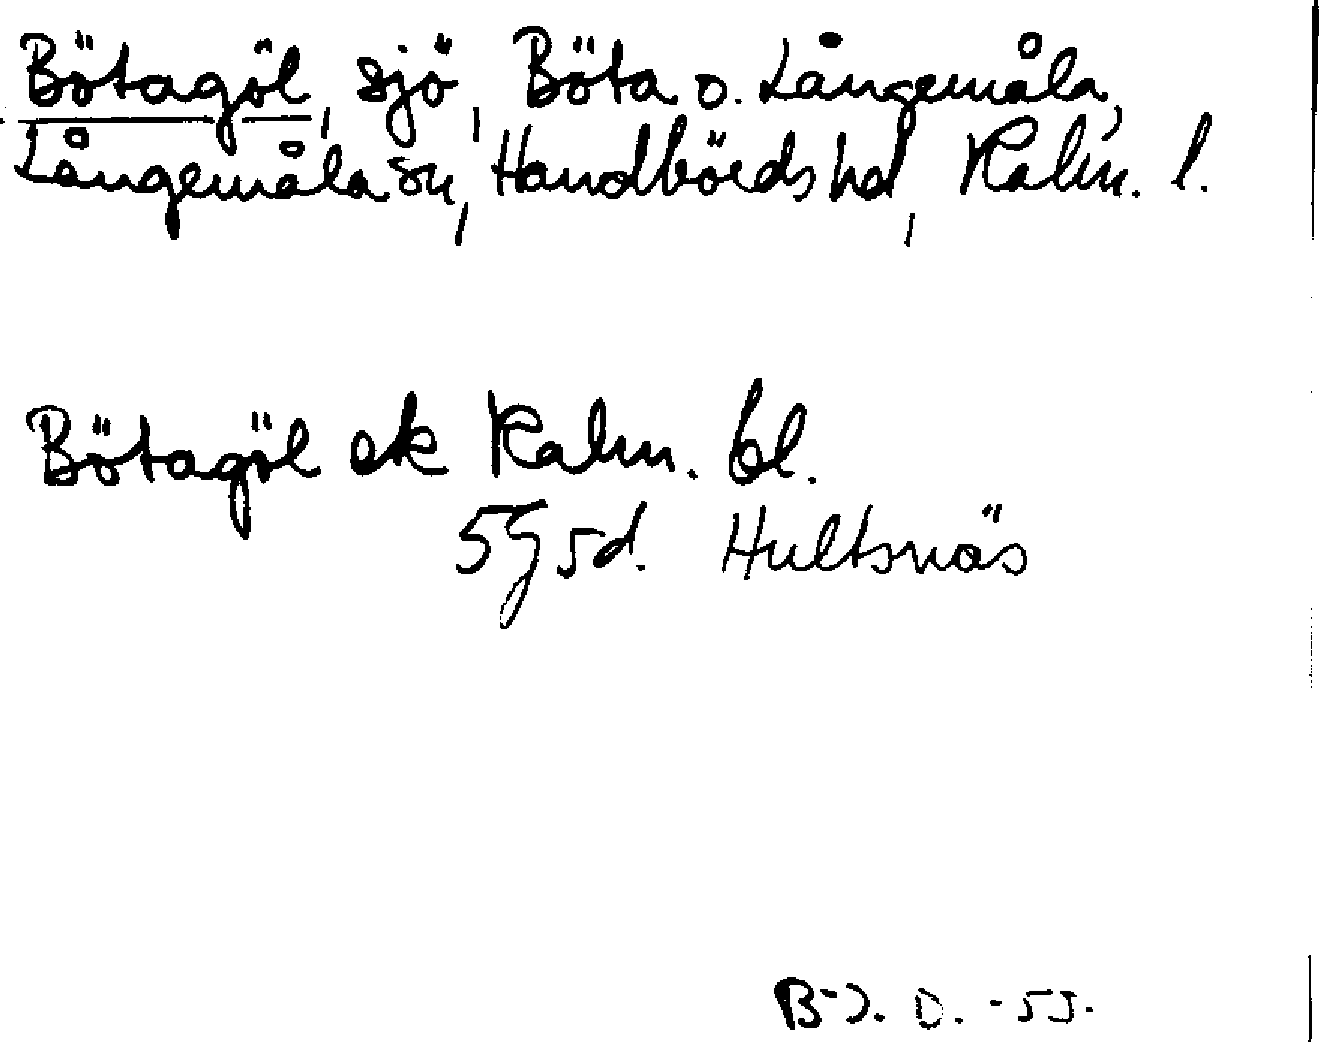 Bötagöl, sjö, Böta o. Långemåla,
Långemåla sn, Handbörds hd, Kalm. l.
Bötagöl ek Kalm. bl.
5G5d. Hultsnäs